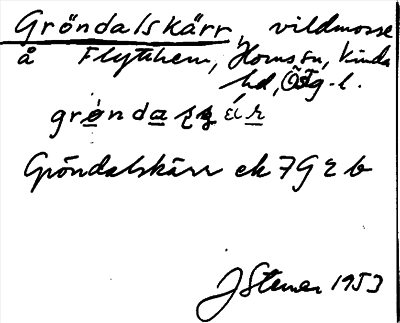 Gröndalskärr, vildmosse
å Flythem, Horns sn, Kinda
hd, Ög. l.
Gröndalskärr ek 7G 2 b
JStener 1953